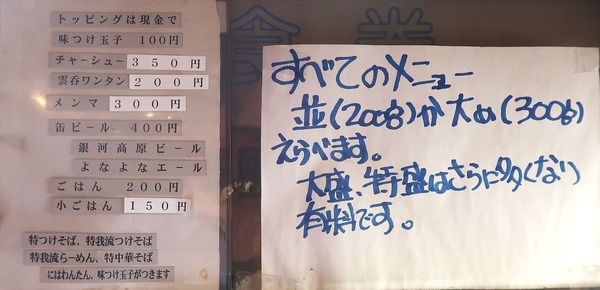 トッピングは現金で
味つけ玉子 100円
チャーシュー 350円
雲呑ワンタン 200円
メンマ 300円
缶ビール 400円
銀河高原ビール
よなよなエール
ごはん 200円
小ごはん 150円
特つけそば、特我流つけそば
特我流らーめん、特中華そば
にはわんたん、味つけ玉子がつきます
食券
すべてのメニュー
並(200g)か大め(300g)
えらべます。
大盛、特盛はさらに多くなり
有料です。